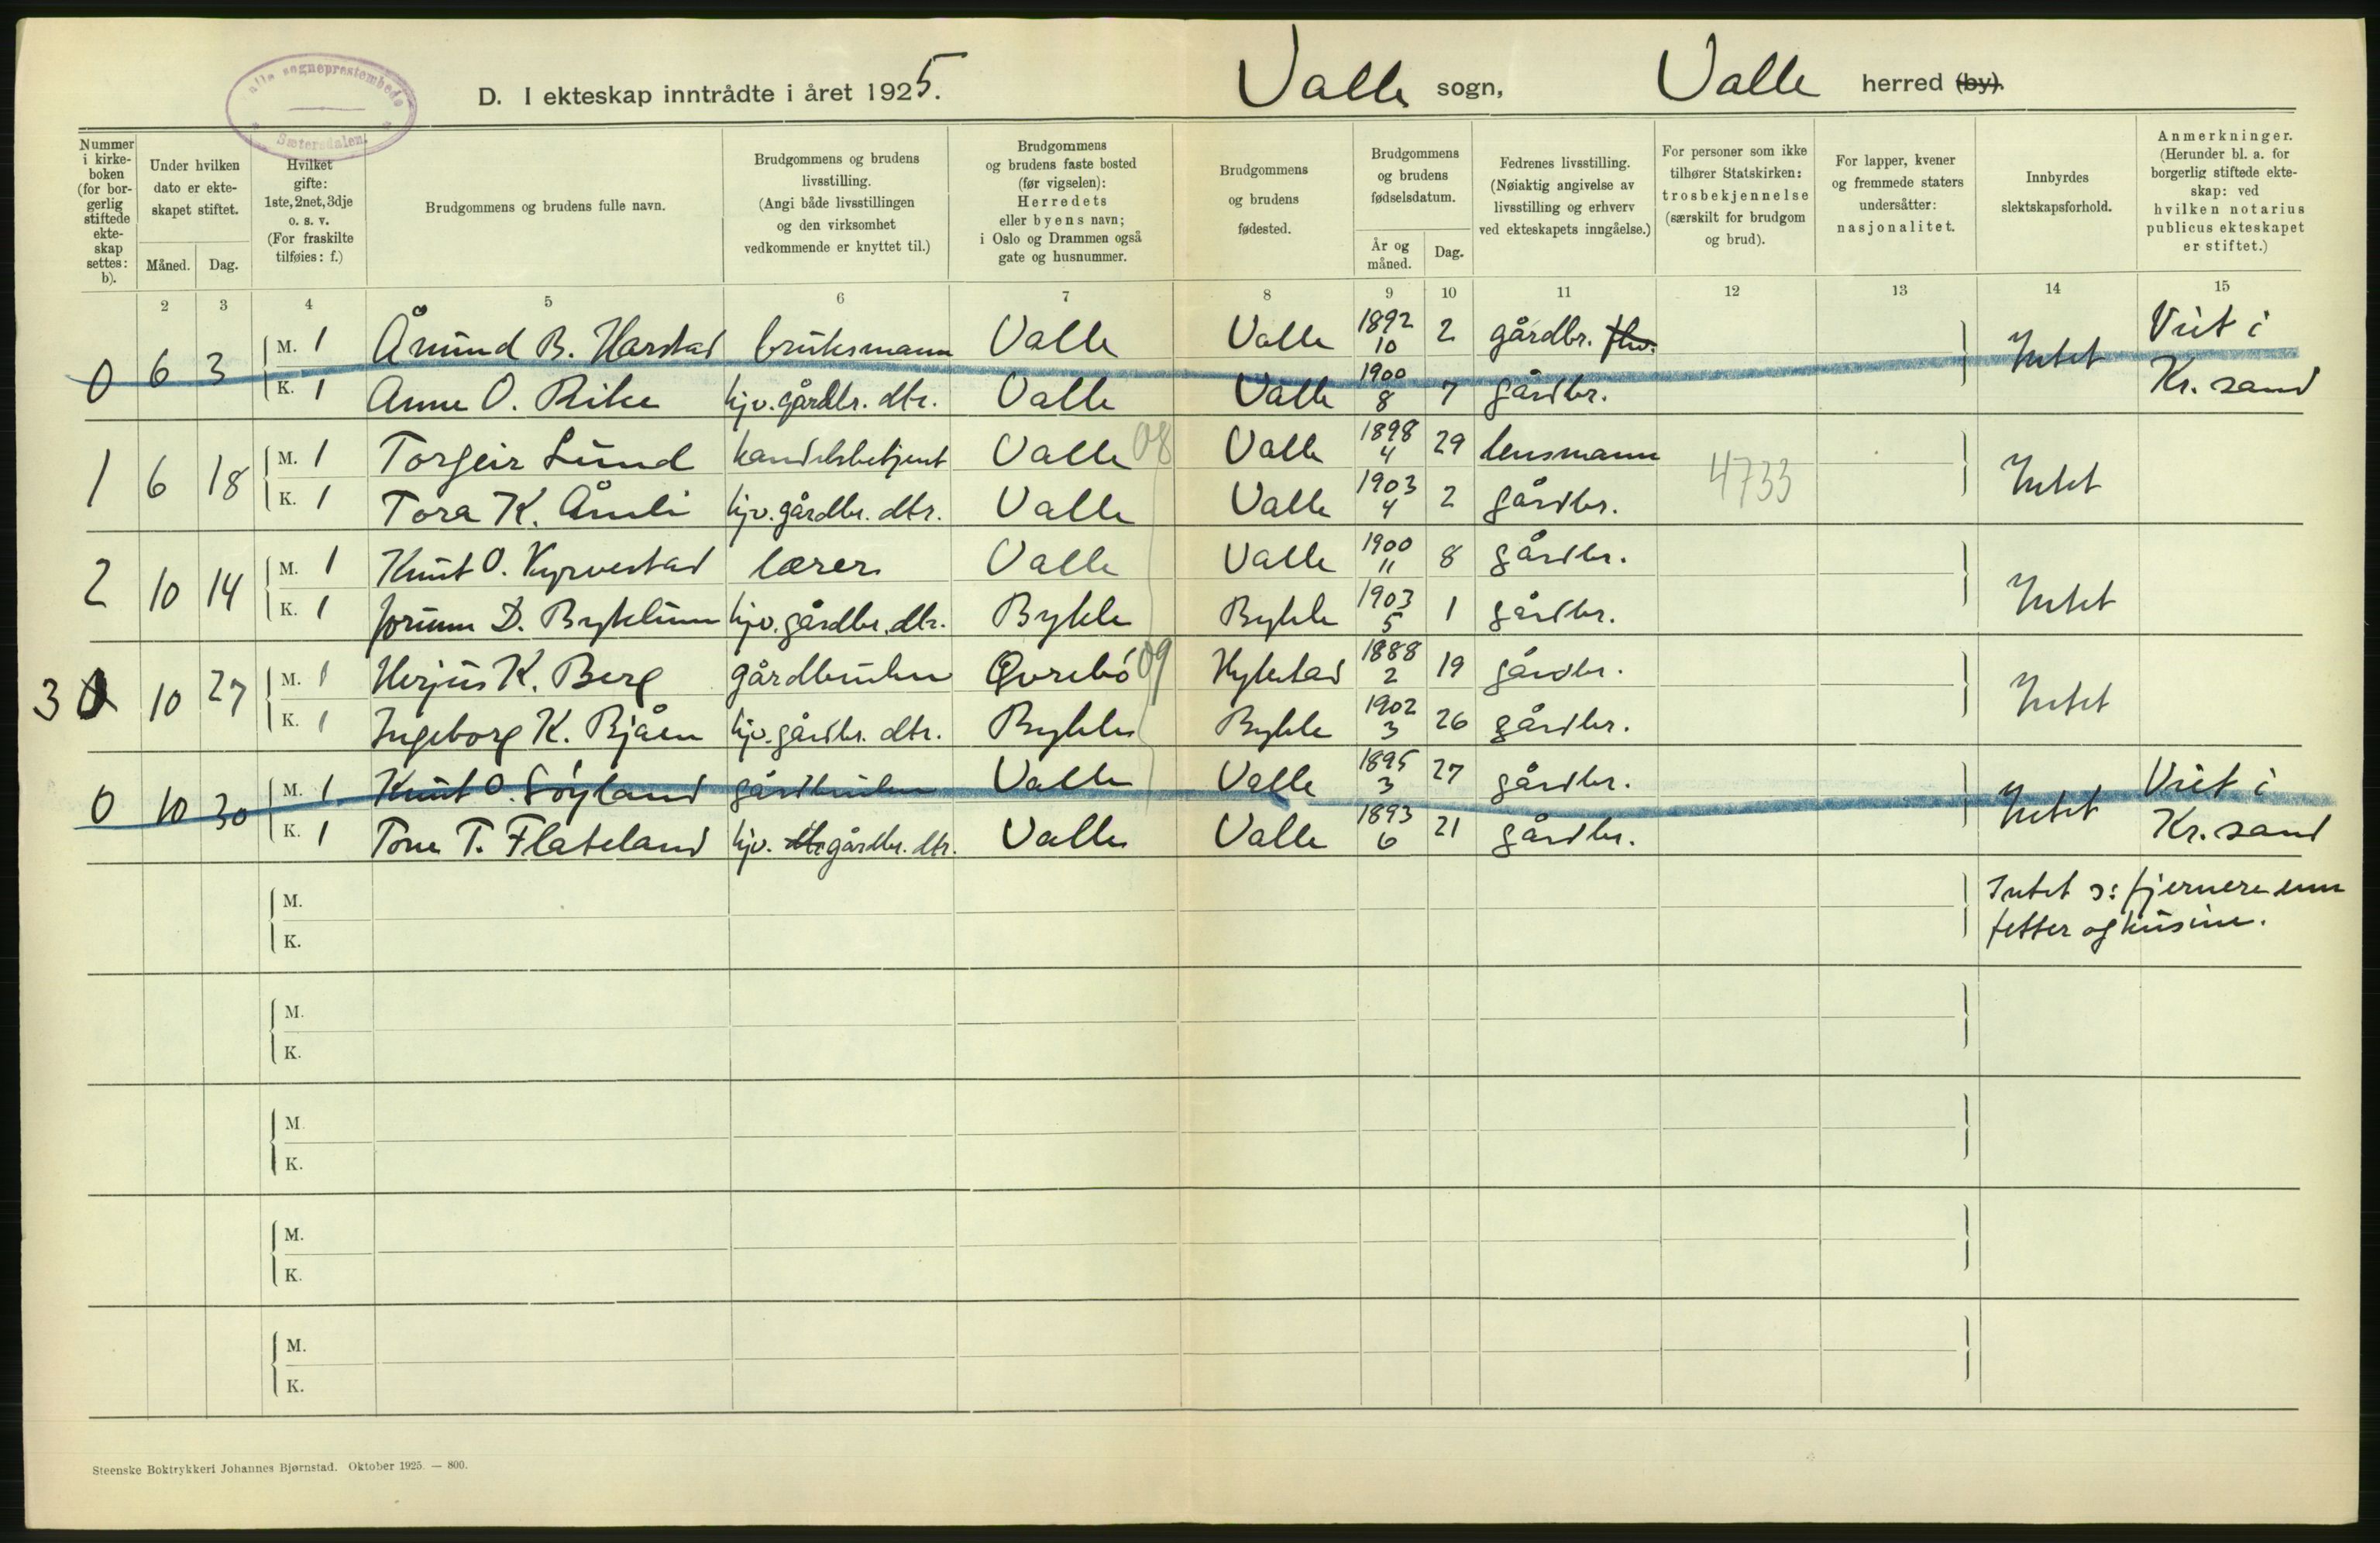 alle sogneprestembede
Sætersdalen.
D. I ekteskap inntrådte i året 1925. Valle sogn, Valle herred (by).
Nummer i kirkeboken (for borgerlig stiftede ekteskap settes: b).
Under hvilken dato er ekteskapet stiftet.
Måned. Dag.
Hvilket gifte: 1ste, 2net, 3dje o. s. v. (For fraskilte tilføies: f.)
Brudgommens og brudens fulle navn.
Brudgommens og brudens livsstilling. (Angi både livsstillingen og den virksomhet vedkommende er knyttet til.)
Brudgommens og brudens faste bosted (før vigselen): Herredets eller byens navn; i Oslo og Drammen også gate og husnummer.
Brudgommens og brudens fødested.
Brudgommens og brudens fødselsdatum.
År og måned. Dag.
Fedrenes livsstilling. (Nøiaktig angivelse av livsstilling og erhverv ved ekteskapets inngåelse.)
For personer som ikke tilhører Statskirken: trosbekjennelse (særskilt for brudgom og brud).
For lapper, kvener og fremmede staters undersåtter: nasjonalitet.
Innbyrdes slektskapsforhold.
Anmerkninger. (Herunder bl. a. for borgerlig stiftede ekteskap: ved hvilken notarius publicus ekteskapet er stiftet.)
2 3 4 5 6 7 8 9 10 11 12 13 14 15
0 6 3 M. 1 Åmund B. Harstad bruksmann Valle Valle 1892 10 2 gårdbr. Intet Viet i
K. 1 Anne O. Rike hjv. gårdbr. dtr. Valle Valle 1900 8 7 gårdbr. Kr. sand
1 6 18 M. 1 Torgeir Lund handelsbetjent Valle 08 Valle 1898 4 29 lensmann 4733 Intet
K. 1 Tora K. Åmli hjv. gårdbr. dtr. Valle Valle 1903 4 2 gårdbr.
2 10 14 M. 1 Knut O. Kyrvestad lærer Valle Valle 1900 11 8 gårdbr. Intet
K. 1 Jorunn D. Byklum hjv. gårdbr. dtr. Bykle Bykle 1903 5 1 gårdbr.
3 10 27 M. 1 Herjus K. Berg gårdbruker Øvrebó 09 Hylestad 1888 2 19 gårdbr. Intet
K. 1 Ingeborg K. Bjåen hjv. gårdbr. dtr. Bykle Bykle 1902 3 26 gårdbr.
0 10 30 M. 1 Knut O. Löyland gårdbruker Valle Valle 1895 3 27 gårdbr. Intet Viet i
K. 1 Tone T. Flateland hjv. dtr gårdbr. dtr. Valle Valle 1893 6 21 gårdbr. Kr. sand
M. Intet ɔ: fjernere enn
K. fetter og kusine.
M.
K.
M.
K.
M.
K.
M.
K.
Steenske Boktrykkeri Johannes Bjørnstad. Oktober 1925. — 800.